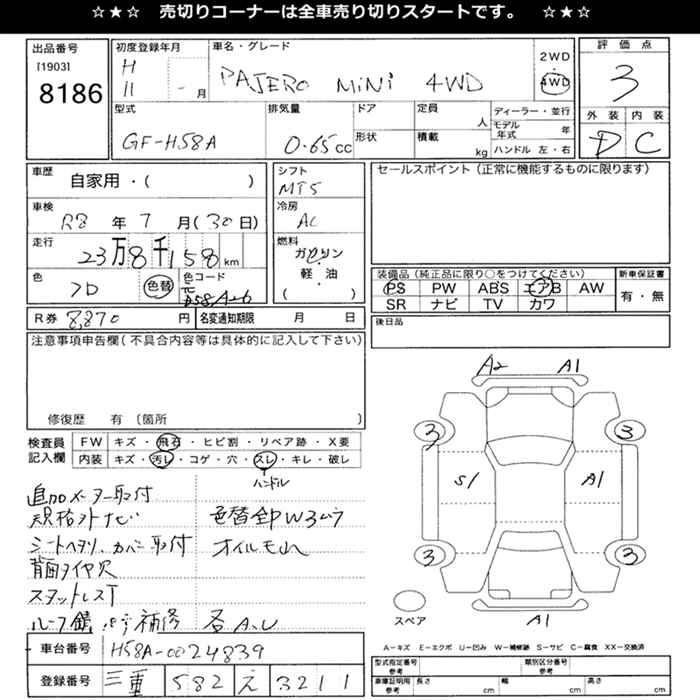 ☆★☆ 売切りコーナーは全車売り切りスタートです。 ☆★☆
出品番号
[1903]
8186
初度登録年月
H
11 - 月
車名・グレード
PAJERO MiNi 4WD
2WD
4WD
評価点
3
外装 内装
D C
型式
GF-H58A
排気量
0.65cc
ドア
形状
定員
人
積載
kg
ディーラー・並行
モデル年式 年
ハンドル 左・右
車歴
自家用・( )
車検
R8 年 7 月(30日)
走行
23万8千158km
色
色替
色コード
シフト
MT5
冷房
AC
燃料
ガソリン
・
軽・油
( )
セールスポイント(正常に機能するものに限ります)
装備品(純正品に限り○をつけてください)
PS PW ABS エアB AW
SR ナビ TV カワ
新車保証書
有・無
R券 8,870 円
名変通知期限 月 日
後日品
注意事項申告欄(不具合内容等は具体的に記入して下さい)
修復歴 有 〔箇所 〕
検査員
記入欄
FW キズ・飛石・ヒビ割・リペア跡・X要
内装 キズ・汚レ・コゲ・穴・スレ・キレ・破レ
ハンドル
追加メーター取付
規格外ナビ
色替全P Wムラ
シートヘタリ、カバー取付
オイルモレ
背面タイヤ欠
スタットレスT
ルーフ錆 補修
各A、U
A2 A1
3 3
S1 A1
3 3
スペア
A1
A-キズ E-エクボ U-凹み W-補修跡 S-サビ C-腐食 XX-交換済
車台番号 H58A-0024839
登録番号 三重 582 え 3211
型式指定番号
参考
類別区分番号
参考
車庫証明用
参考
長さ cm 幅 cm 高さ cm